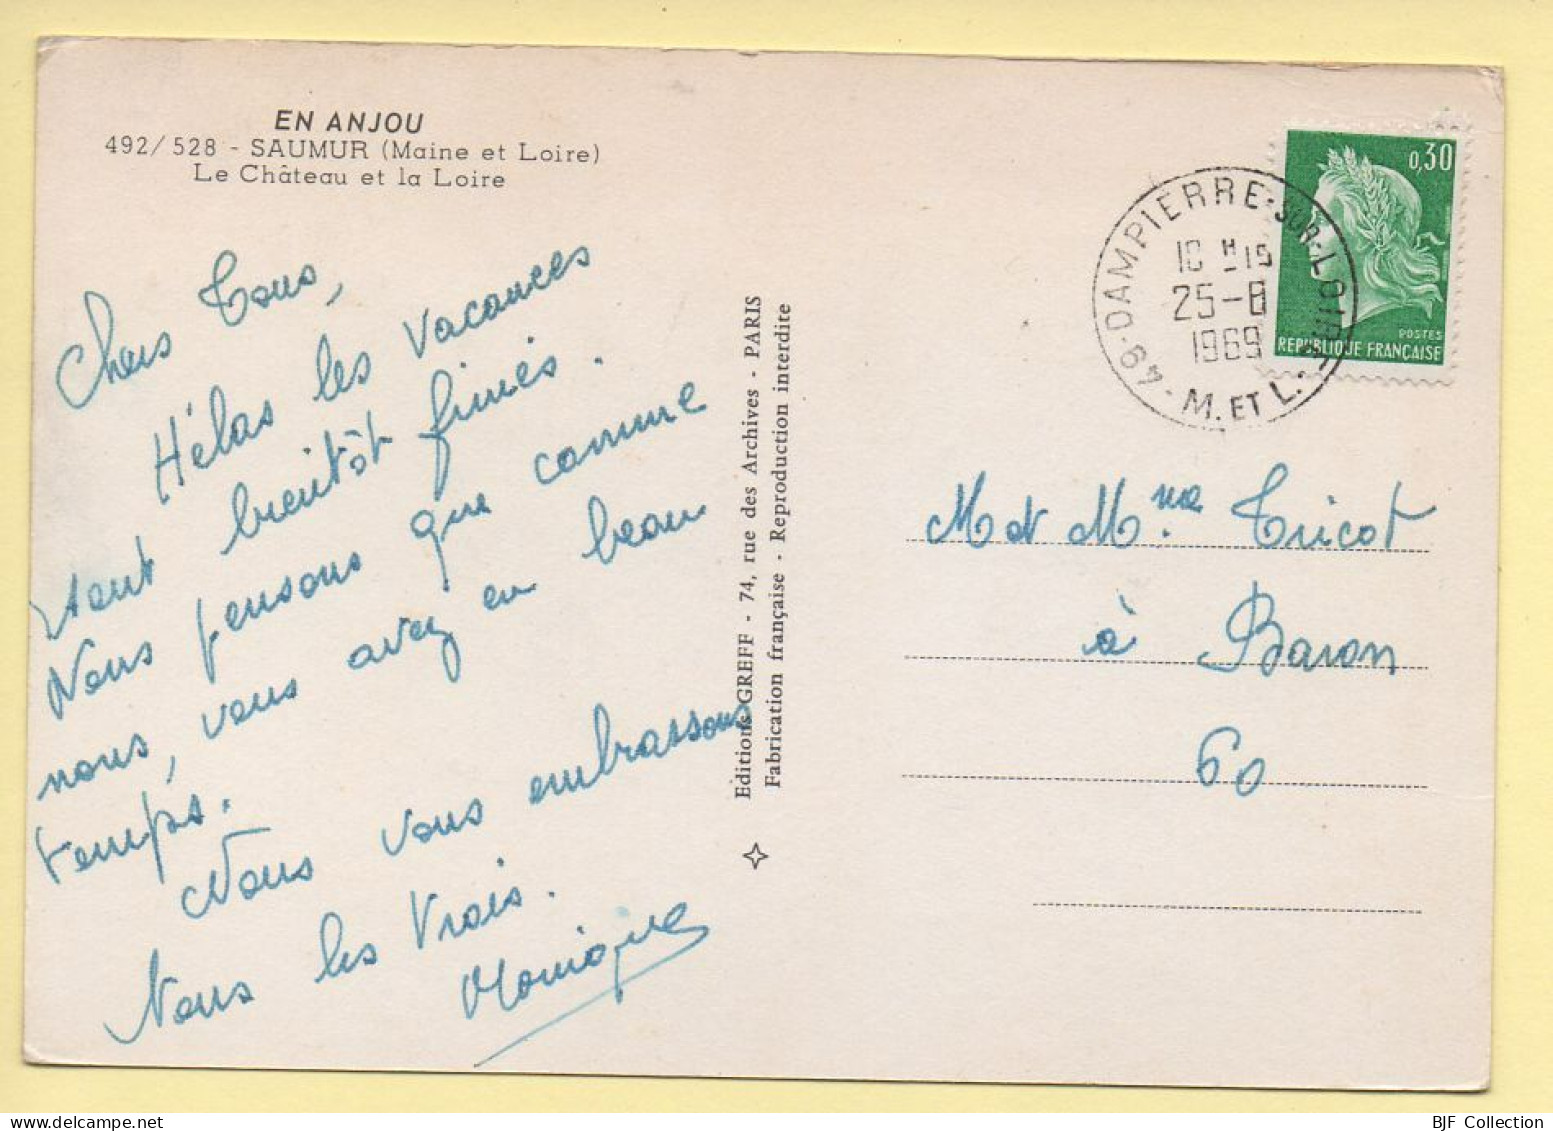 EN ANJOU
492/528 - SAUMUR (Maine et Loire)
Le Château et la Loire
Chers Tous,
Hélas les vacances
sont bientôt finies.
Nous pensons que comme
nous, vous avez eu beau
temps.
Nous vous embrassons
Tous les Trois.
Monique
Editions GREFF - 74, rue des Archives - PARIS
Fabrication française - Reproduction interdite
0,30
POSTES
REPUBLIQUE FRANÇAISE
49 - DAMPIERRE-SUR-LOIRE
25-8
1969
M. ET L.
M et Mme Tricot
à Baron
60
BJF Collection